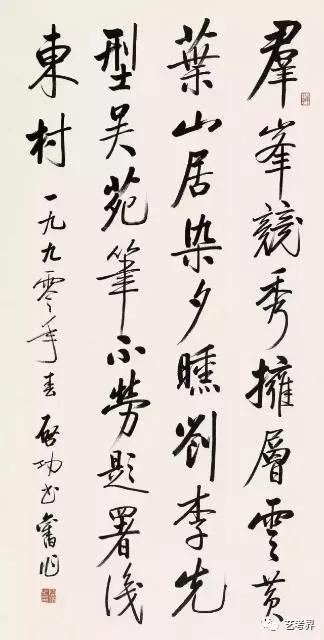 羣峯競秀擁層雲黃
葉山居染夕曛劉李先
型吳苑筆不勞題署識
東村
一九九零年春 啓功書舊作
艺考界